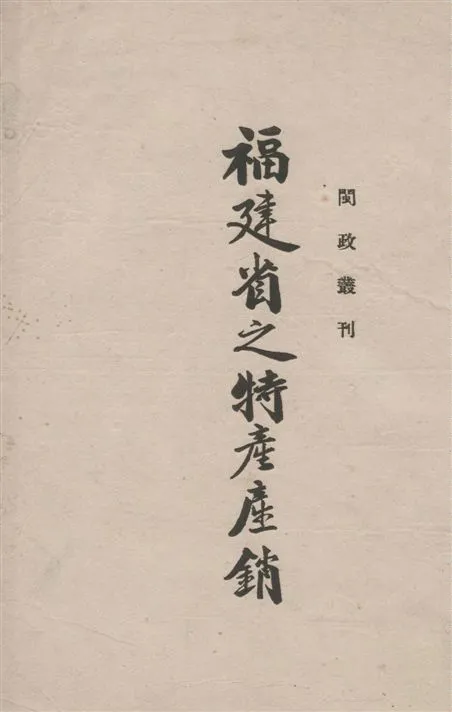 閩政叢刊
福建省之特產產銷